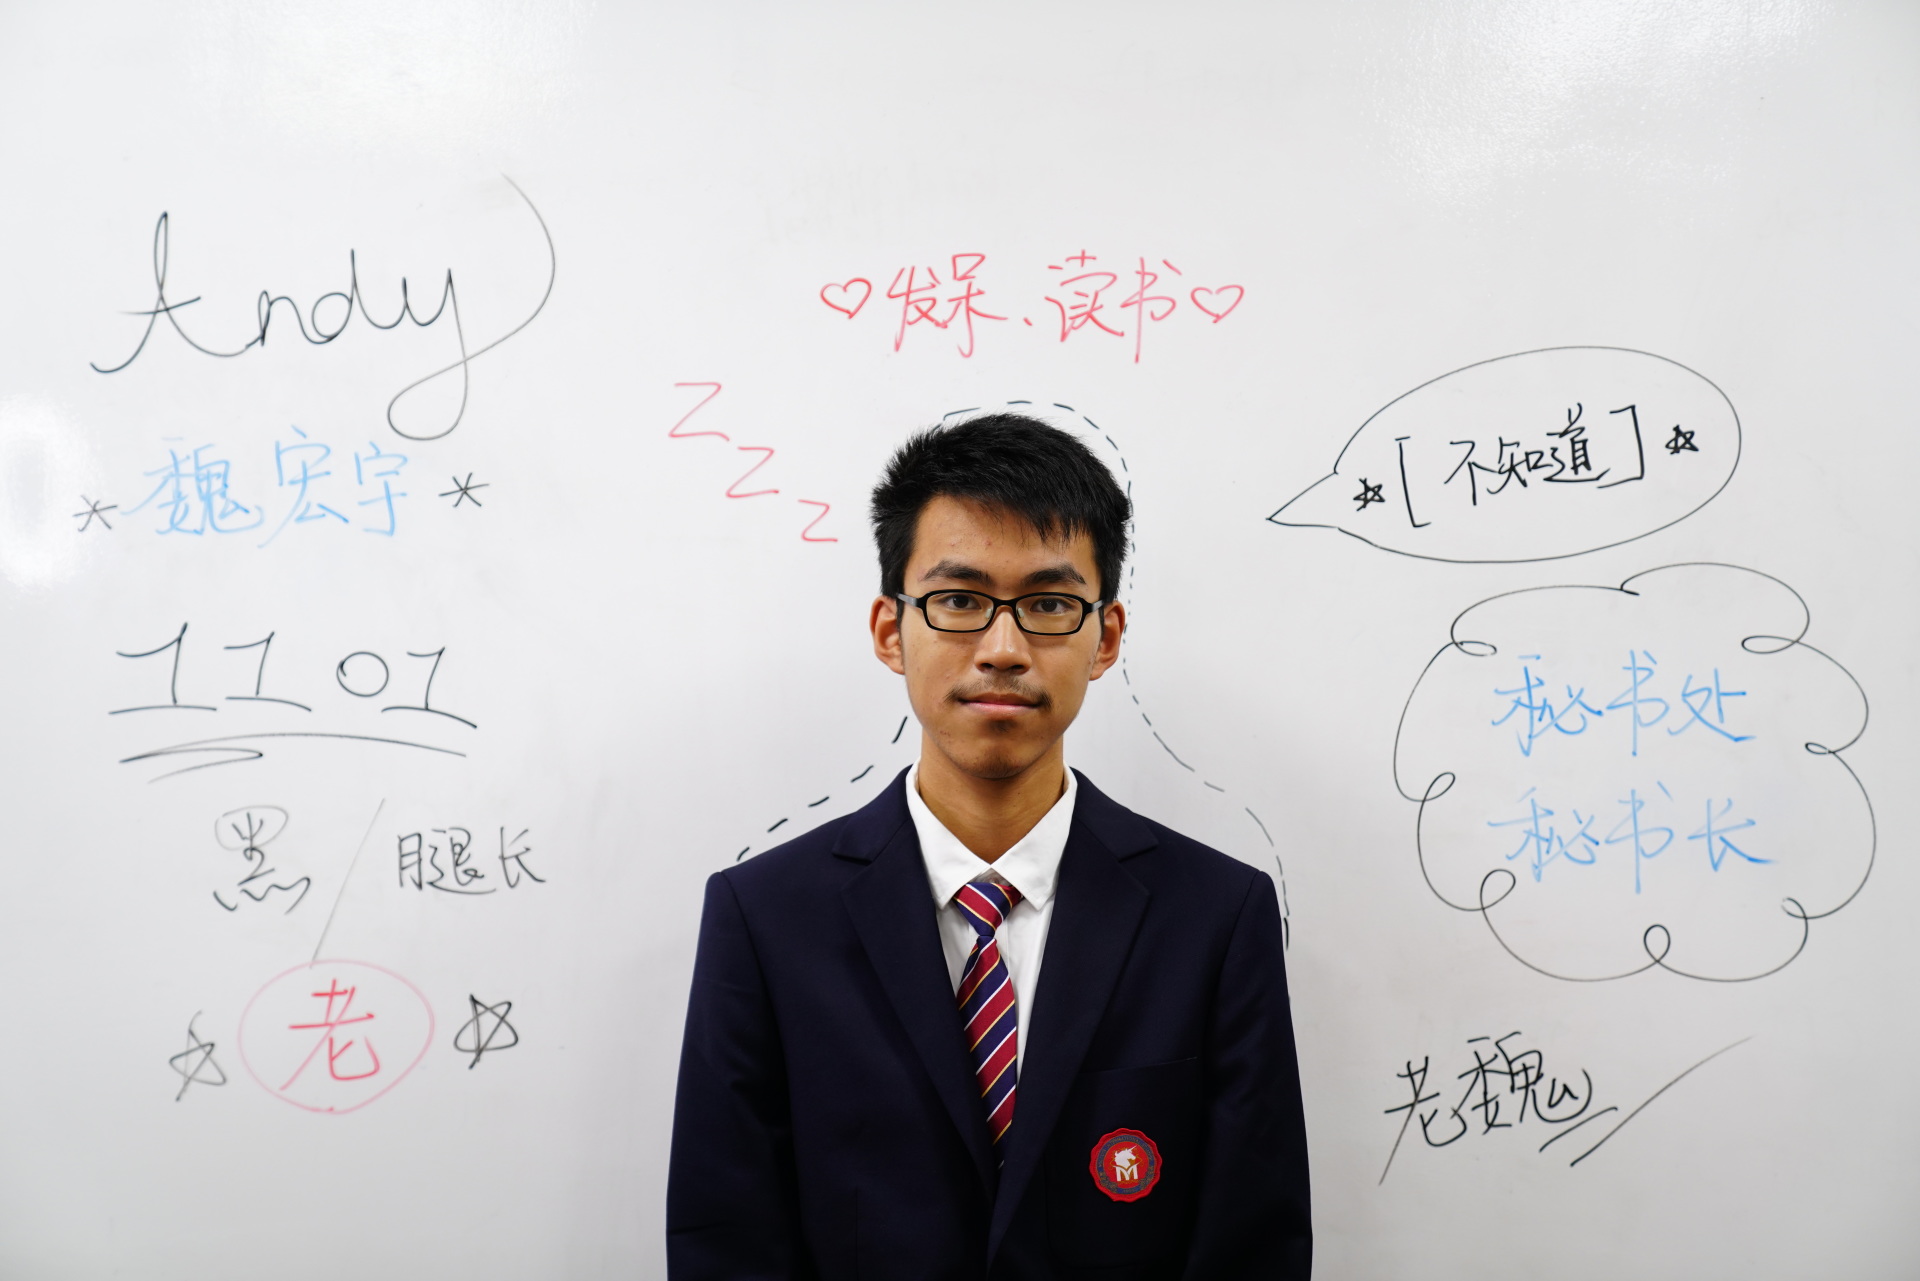 Andy
魏宏宇
1101
黑/腿长
老
♡发呆、读书♡
Z
Z
Z
[不知道]
秘书处
秘书长
老魏
M